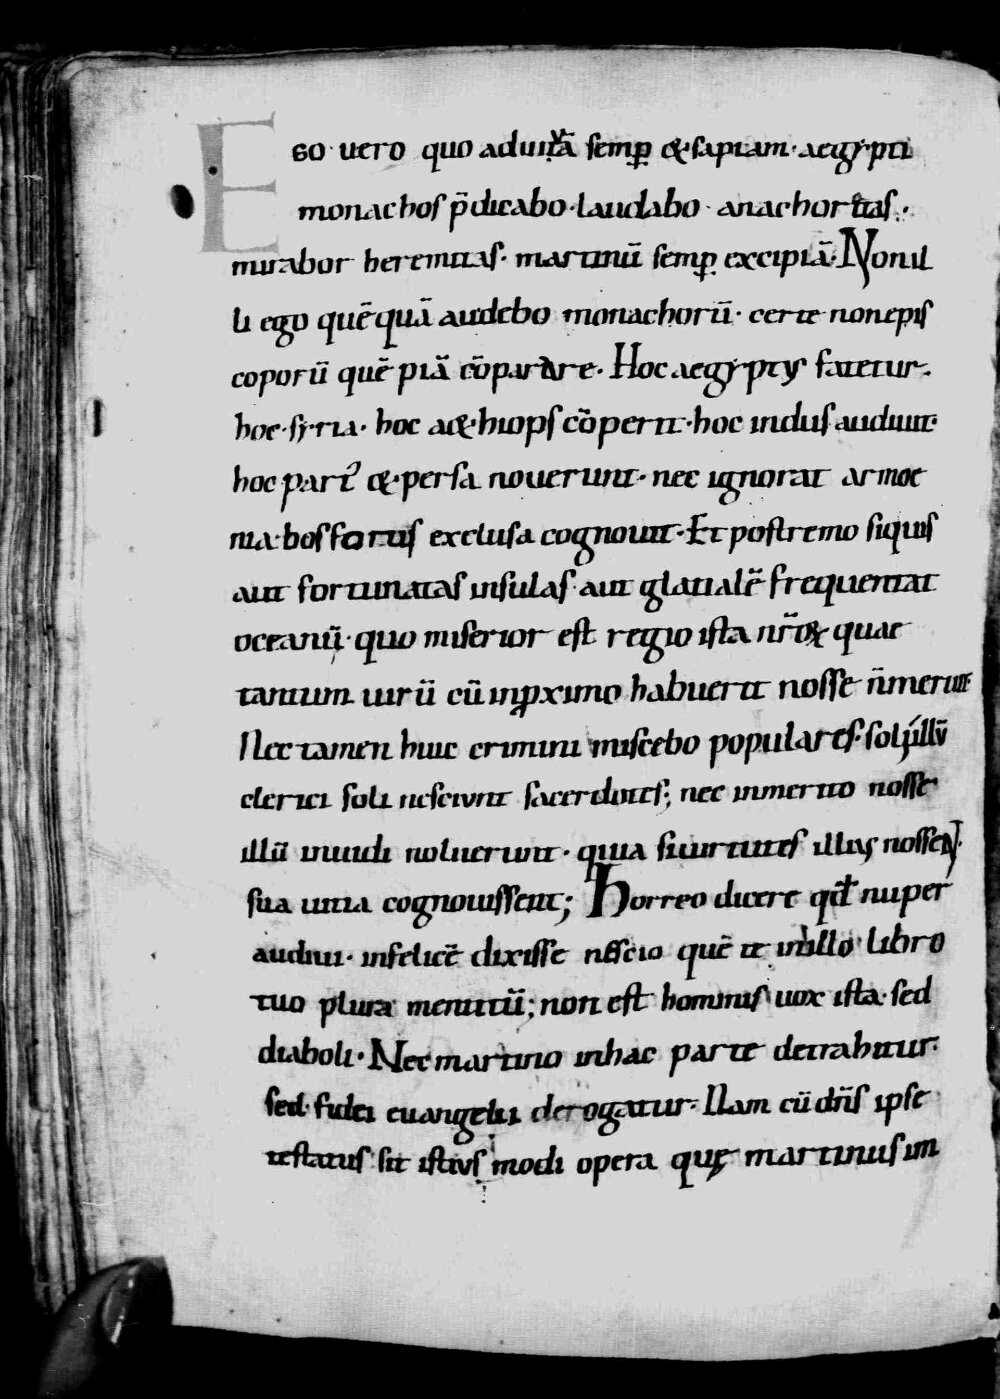 Ego uero quo aduixā semp̱ &·sapiam·aegẏ·pti
monachos p̄dicabo·laudabo· anachoritas·
mirabor heremitas· martinū semp̱ excipiā·Non il
li ego quē quā audebo monachorū· certe non epis
coporū quē piā cōparare· Hoc aegẏptus fatetur·
hoc·sẏria· hoc a&·hiops cōperit·hoc indus audiuit·
hoc part᷒ &·persa nouerunt· nec ignorat armoe
nia·bosforus exclusa cognouit·Et postremo siquis
aut fortunatas insulas·aut glatialē frequentat
oceanū·quo miserior est regio ista nr̄ox quae
tantum uirū cū inp̱ximo habuerit nosse n̄meruit
Nec tamen huic crimini miscebo populares·soli illū
clerici soli nesciunt sacerdotes; nec inmerito nosse
illū inuidi noluerunt· quia si uirtutes illius nossent·
sua uitia cognouissent; Horreo dicere qđ nuper
audiui· infelicē dixisse nescio quē te in illo libro
tuo plura mentitū; non est hominis uox ista·sed
diaboli· Nec martino inhac parte detrahitur·
sed·fidei euangelii derogatur· Nam cū dn̄s ipse
testatus sit istius modi opera quę martinus im